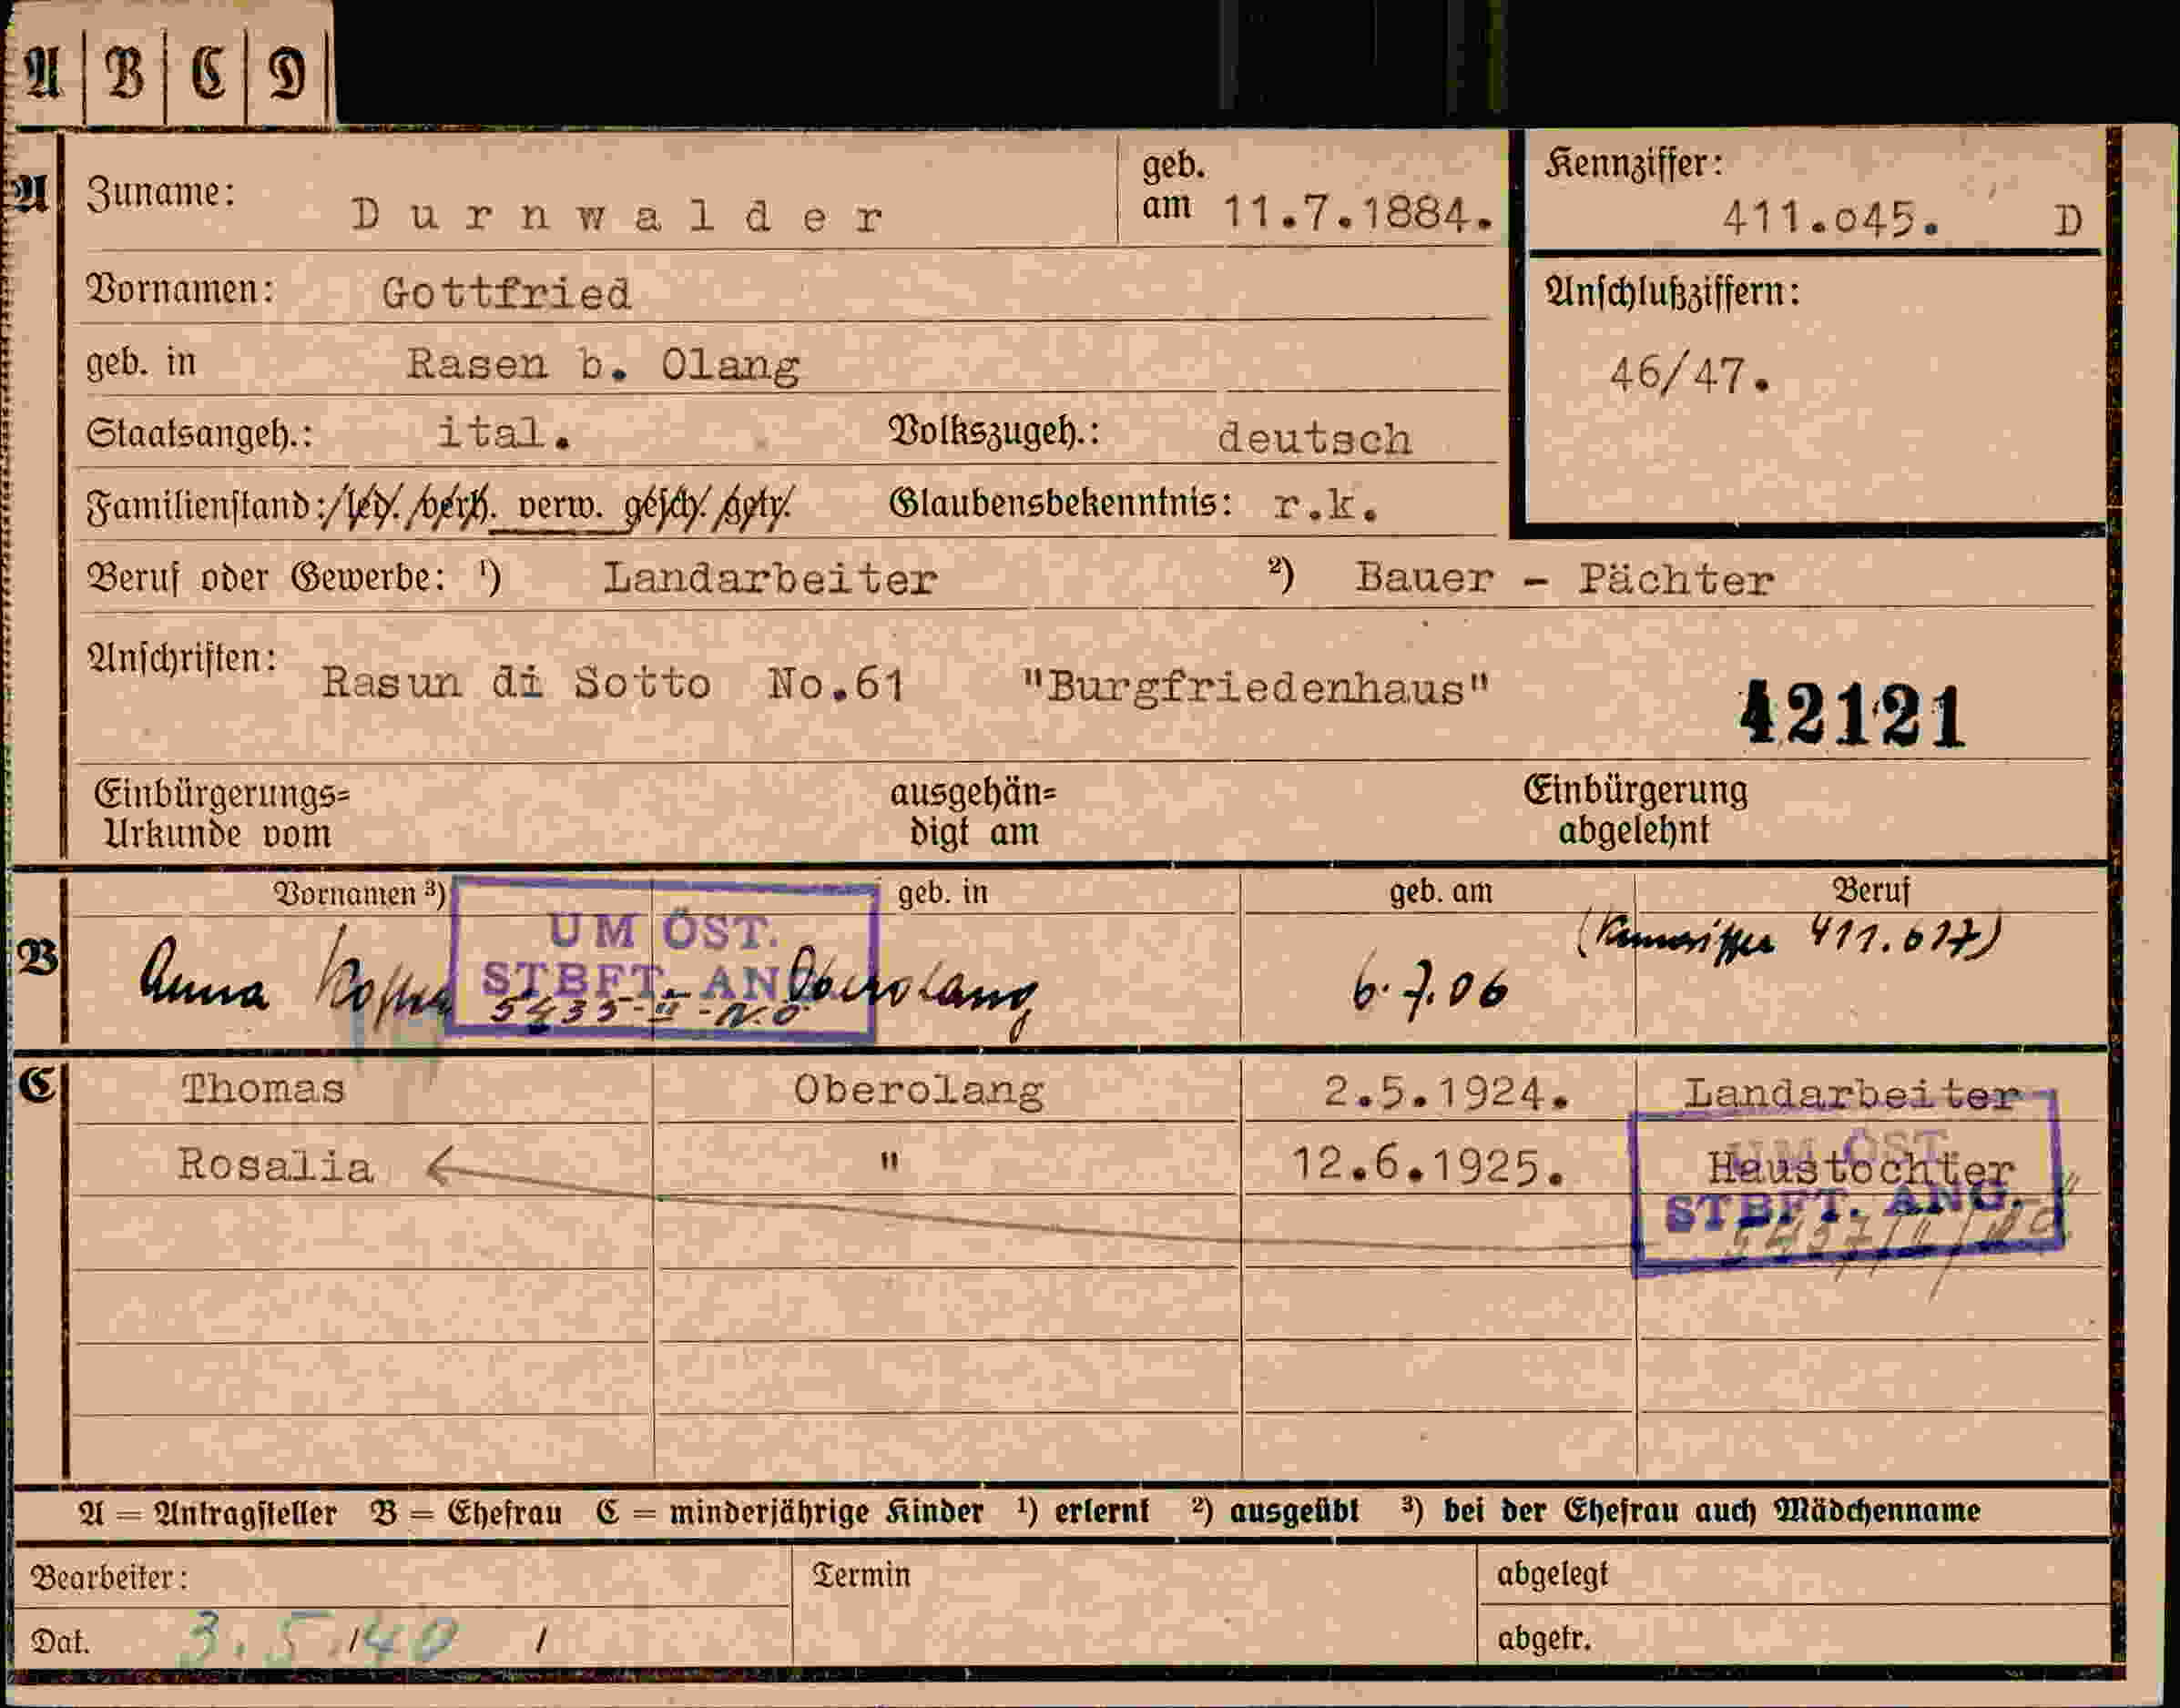 A B C D
A Zuname: Durnwalder geb. am 11.7.1884. Kennziffer: 411.045. D
Vornamen: Gottfried Anschlußziffern:
geb. in Rasen b. Olang 46/47.
Staatsangeh.: ital. Volkszugeh.: deutsch
Familienstand: led. verh. verw. gesch. getr. Glaubensbekenntnis: r.k.
Beruf oder Gewerbe: ¹) Landarbeiter ²) Bauer - Pächter
Anschriften: Rasun di Sotto No.61 "Burgfriedenhaus" 42121
Einbürgerungs= ausgehän= Einbürgerung
Urkunde vom digt am abgelehnt
Vornamen ³) geb. in geb. am Beruf
UM ÖST. (Kennziffer 411.617)
B Anna STBFT. ANG. Oberolang 6.7.06
5435-II-N.Ö.
C Thomas Oberolang 2.5.1924. Landarbeiter
UM ÖST.
Rosalia " 12.6.1925. Haustochter
STBFT. ANG.
A = Antragsteller B = Ehefrau C = minderjährige Kinder ¹) erlernt ²) ausgeübt ³) bei der Ehefrau auch Mädchenname
Bearbeiter: Termin abgelegt
Dat. 3.5.40 abgetr.